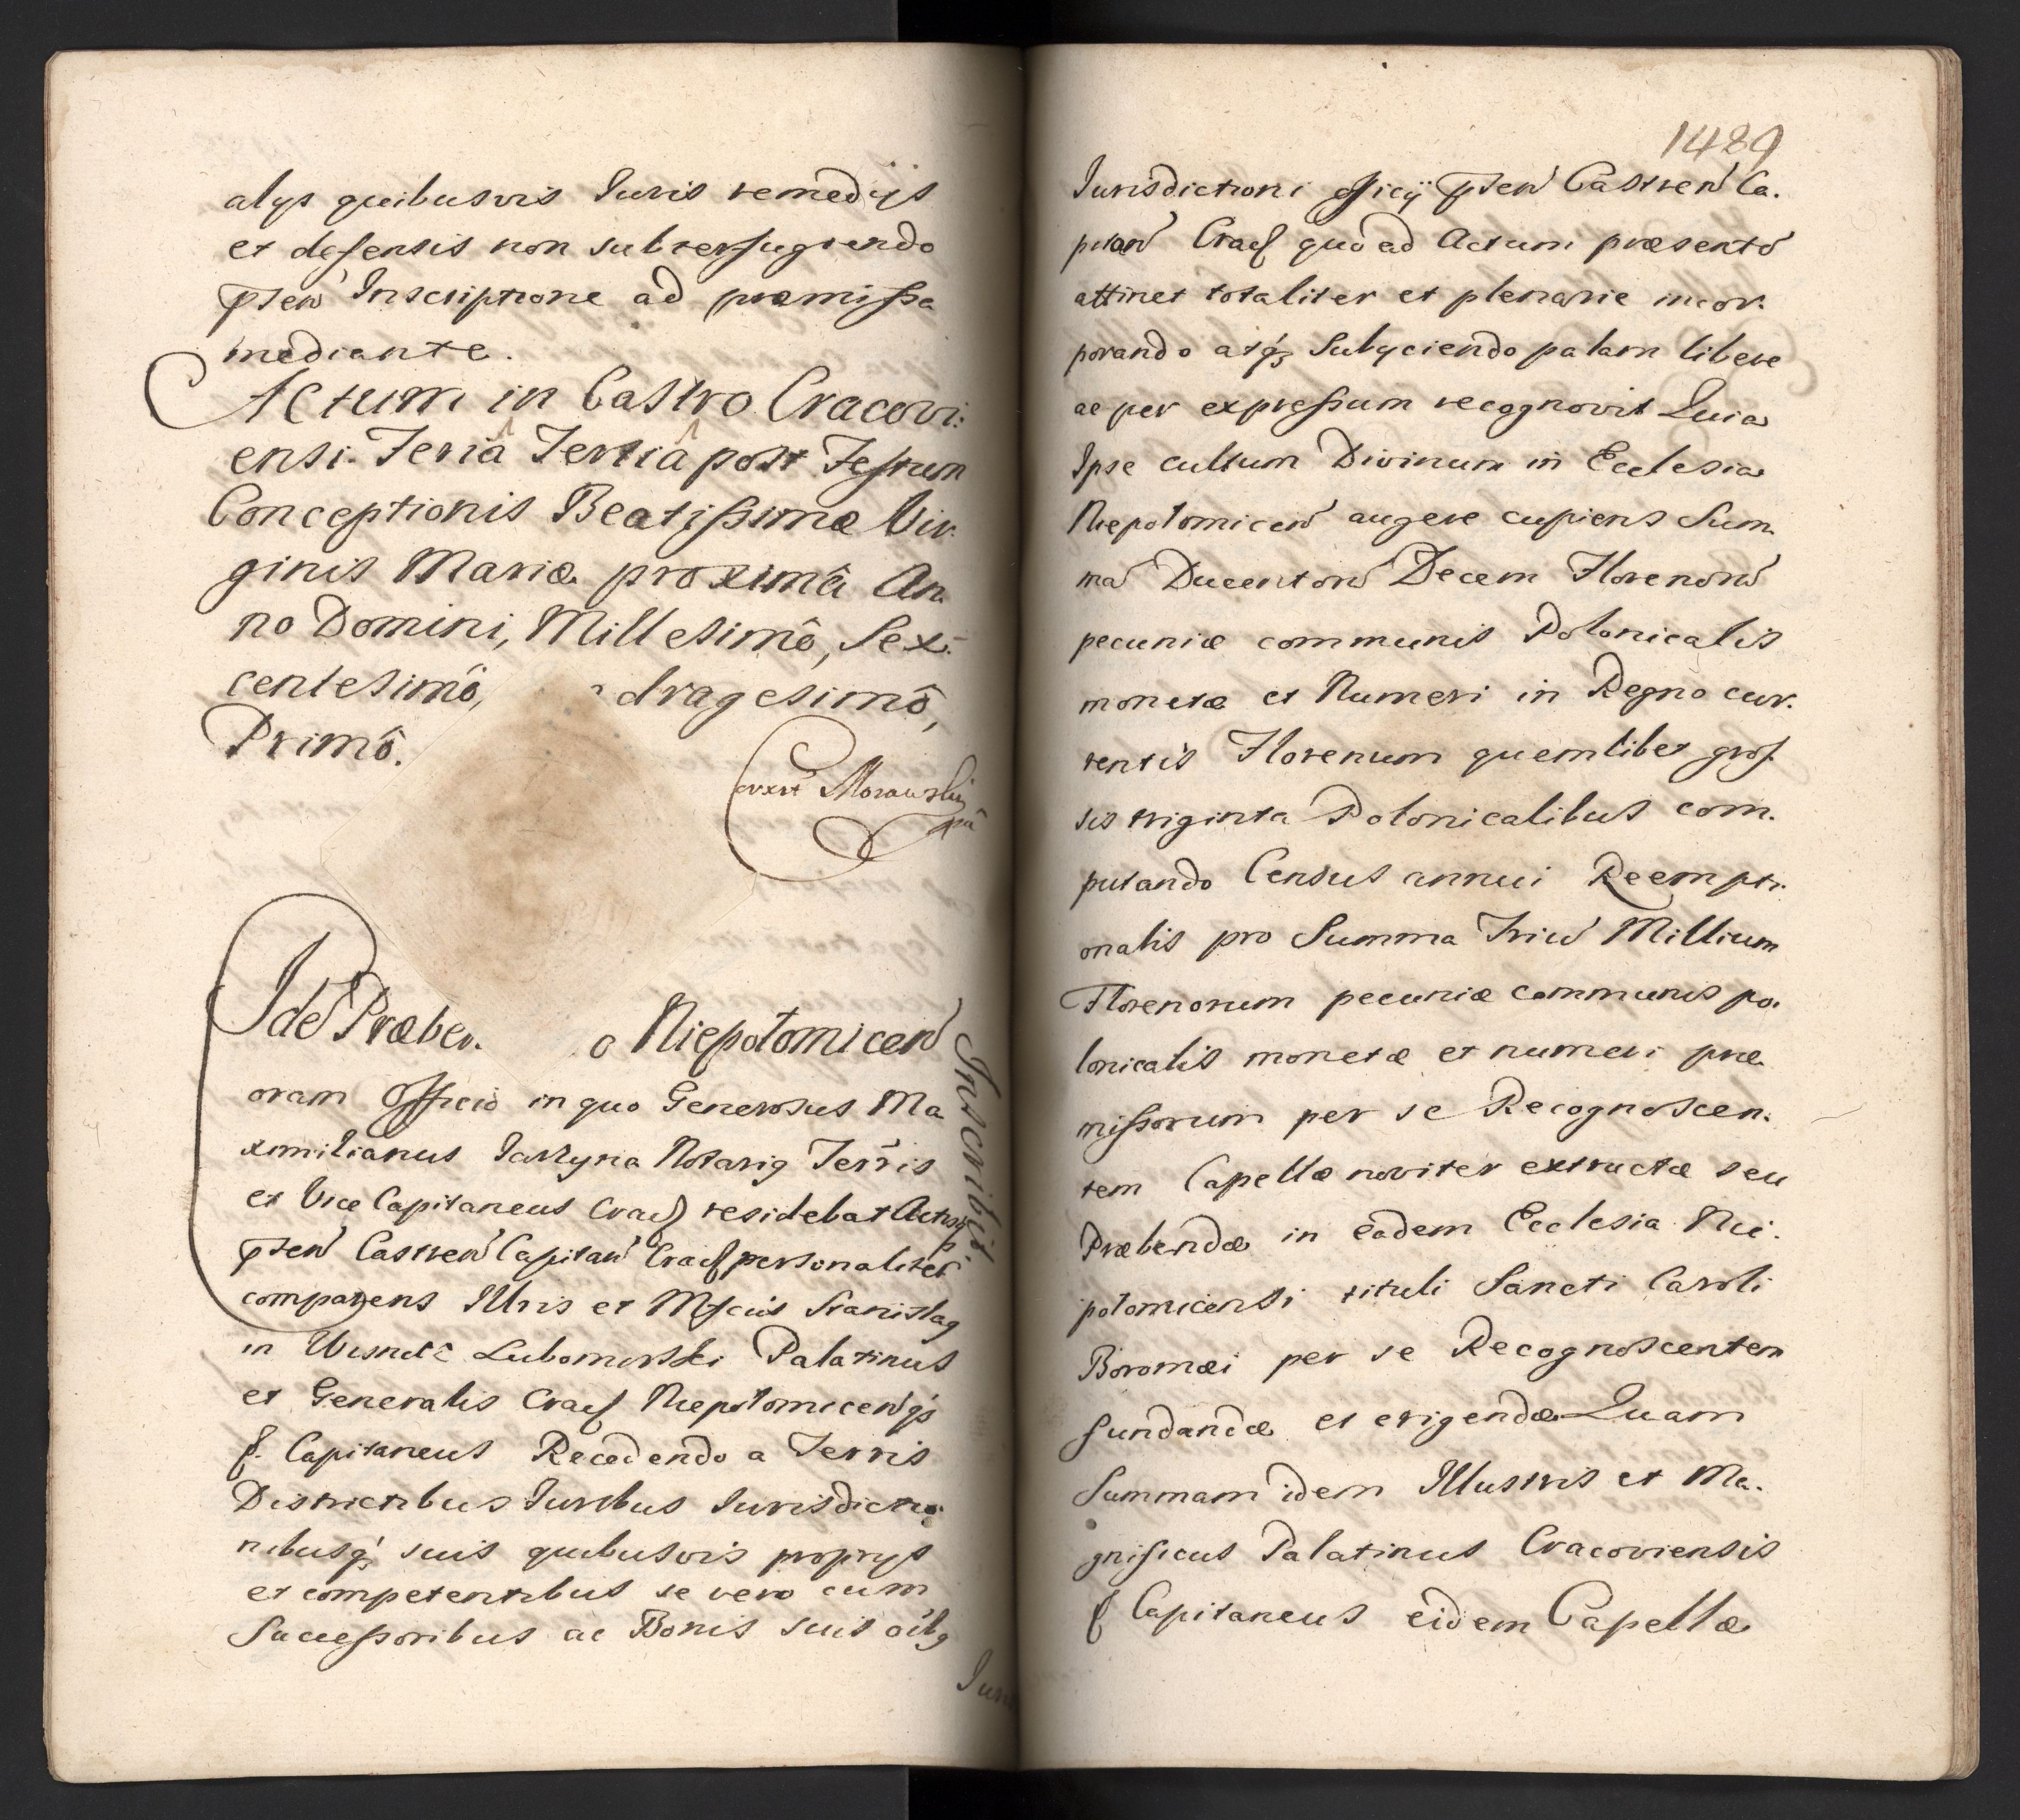 alys quibusvis Iuris remedijs
et defensis non subterfugiendo
pñten Inscriptione ad præmissa
mediante.
Actum in Castro Cracovi:
ensi. Feria Tertiâ post Festum
Conceptionis Beatissimæ Vir
ginis Mariæ proximâ An
no Domini, Millesimô, Sex:
centesimô, dragesimô,
Primô.
Morawski
Idē Præben. o Niepotomicen
Inscribit
oram Officio in quo Generosus Ma
ximilianus Iarzyna Notarig Terris
et Vice Capitaneus Crac residebat Actisq
pñten Castren Capitan Crac personaliter
comparens Illris et Mfcus Stanislag
in Wisnicz Lubomirski Palatinus
et Generalis Crac Niepotomicenqȝ
p. Capitaneus Recedendo a Terris
Districtibus Iuribus Iurisdictio
nibusqȝ suis quibusvis proprys
et competentibus se vero cum
Successoribus ac Bonis suis oibg
Iuris
1489
Iurisdictioni officij pñten Castren Ca.
pitan Crac quo ad Actum præsentē
attinet totaliter et plenarie incor.
porando atqȝ Subyciendo palam libere
ac per expressum recognovit Quia
Ipse cultum Divinum in Ecclesia
Niepotomicen augere cupiens Sum
ma Ducentorū Decem Florenorū
pecuniæ communis Polonicalis
monetæ et Numeri in Regno cur.
rentis Florenum quemlibet gros
sis triginta Polonicalibus com.
putando Census annui Reempti.
onalis pro Summa Triū Millium
Florenorum pecuniæ communis po.
lonicalis monetæ et numeri præ
missorum per se Recognoscen.
tem Capellæ noviter extructæ seu
Præbendæ in eadem Ecclesia Nie.
potomicensi tituli Sancti Caroli
Boromæi per se Recognoscentem
fundandæ et erigendæ Quam
Summam idem Illustris et Ma.
gnificus Palatinus Cracoviensis
p Capitaneus eidem Capellæ